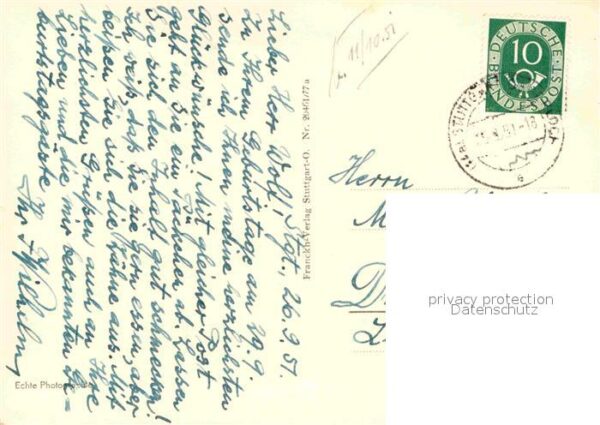 Stgt., 26.9.51.
Lieber Herr Wolf!
Zu Ihrem Geburtstage am 29.9.
sende ich Ihnen meine herzlichsten
Glückwünsche! Mit gleicher Post
geht an Sie ein Päckchen ab. Lassen
Sie sich den Inhalt gut schmecken!
Ich weiß, daß Sie sie gern essen, aber
beißen Sie sich die Zähne aus. Mit
herzlichsten Grüßen auch an Ihre
Lieben und die mir bekannten Ge-
burtstagsgäste
Ihr Wilhelm
Echte Photographie
Franckh-Verlag Stuttgart-O. Nr.
11/10.51
DEUTSCHE
BUNDESPOST
10
STUTTGART
Herrn
privacy protection
Datenschutz